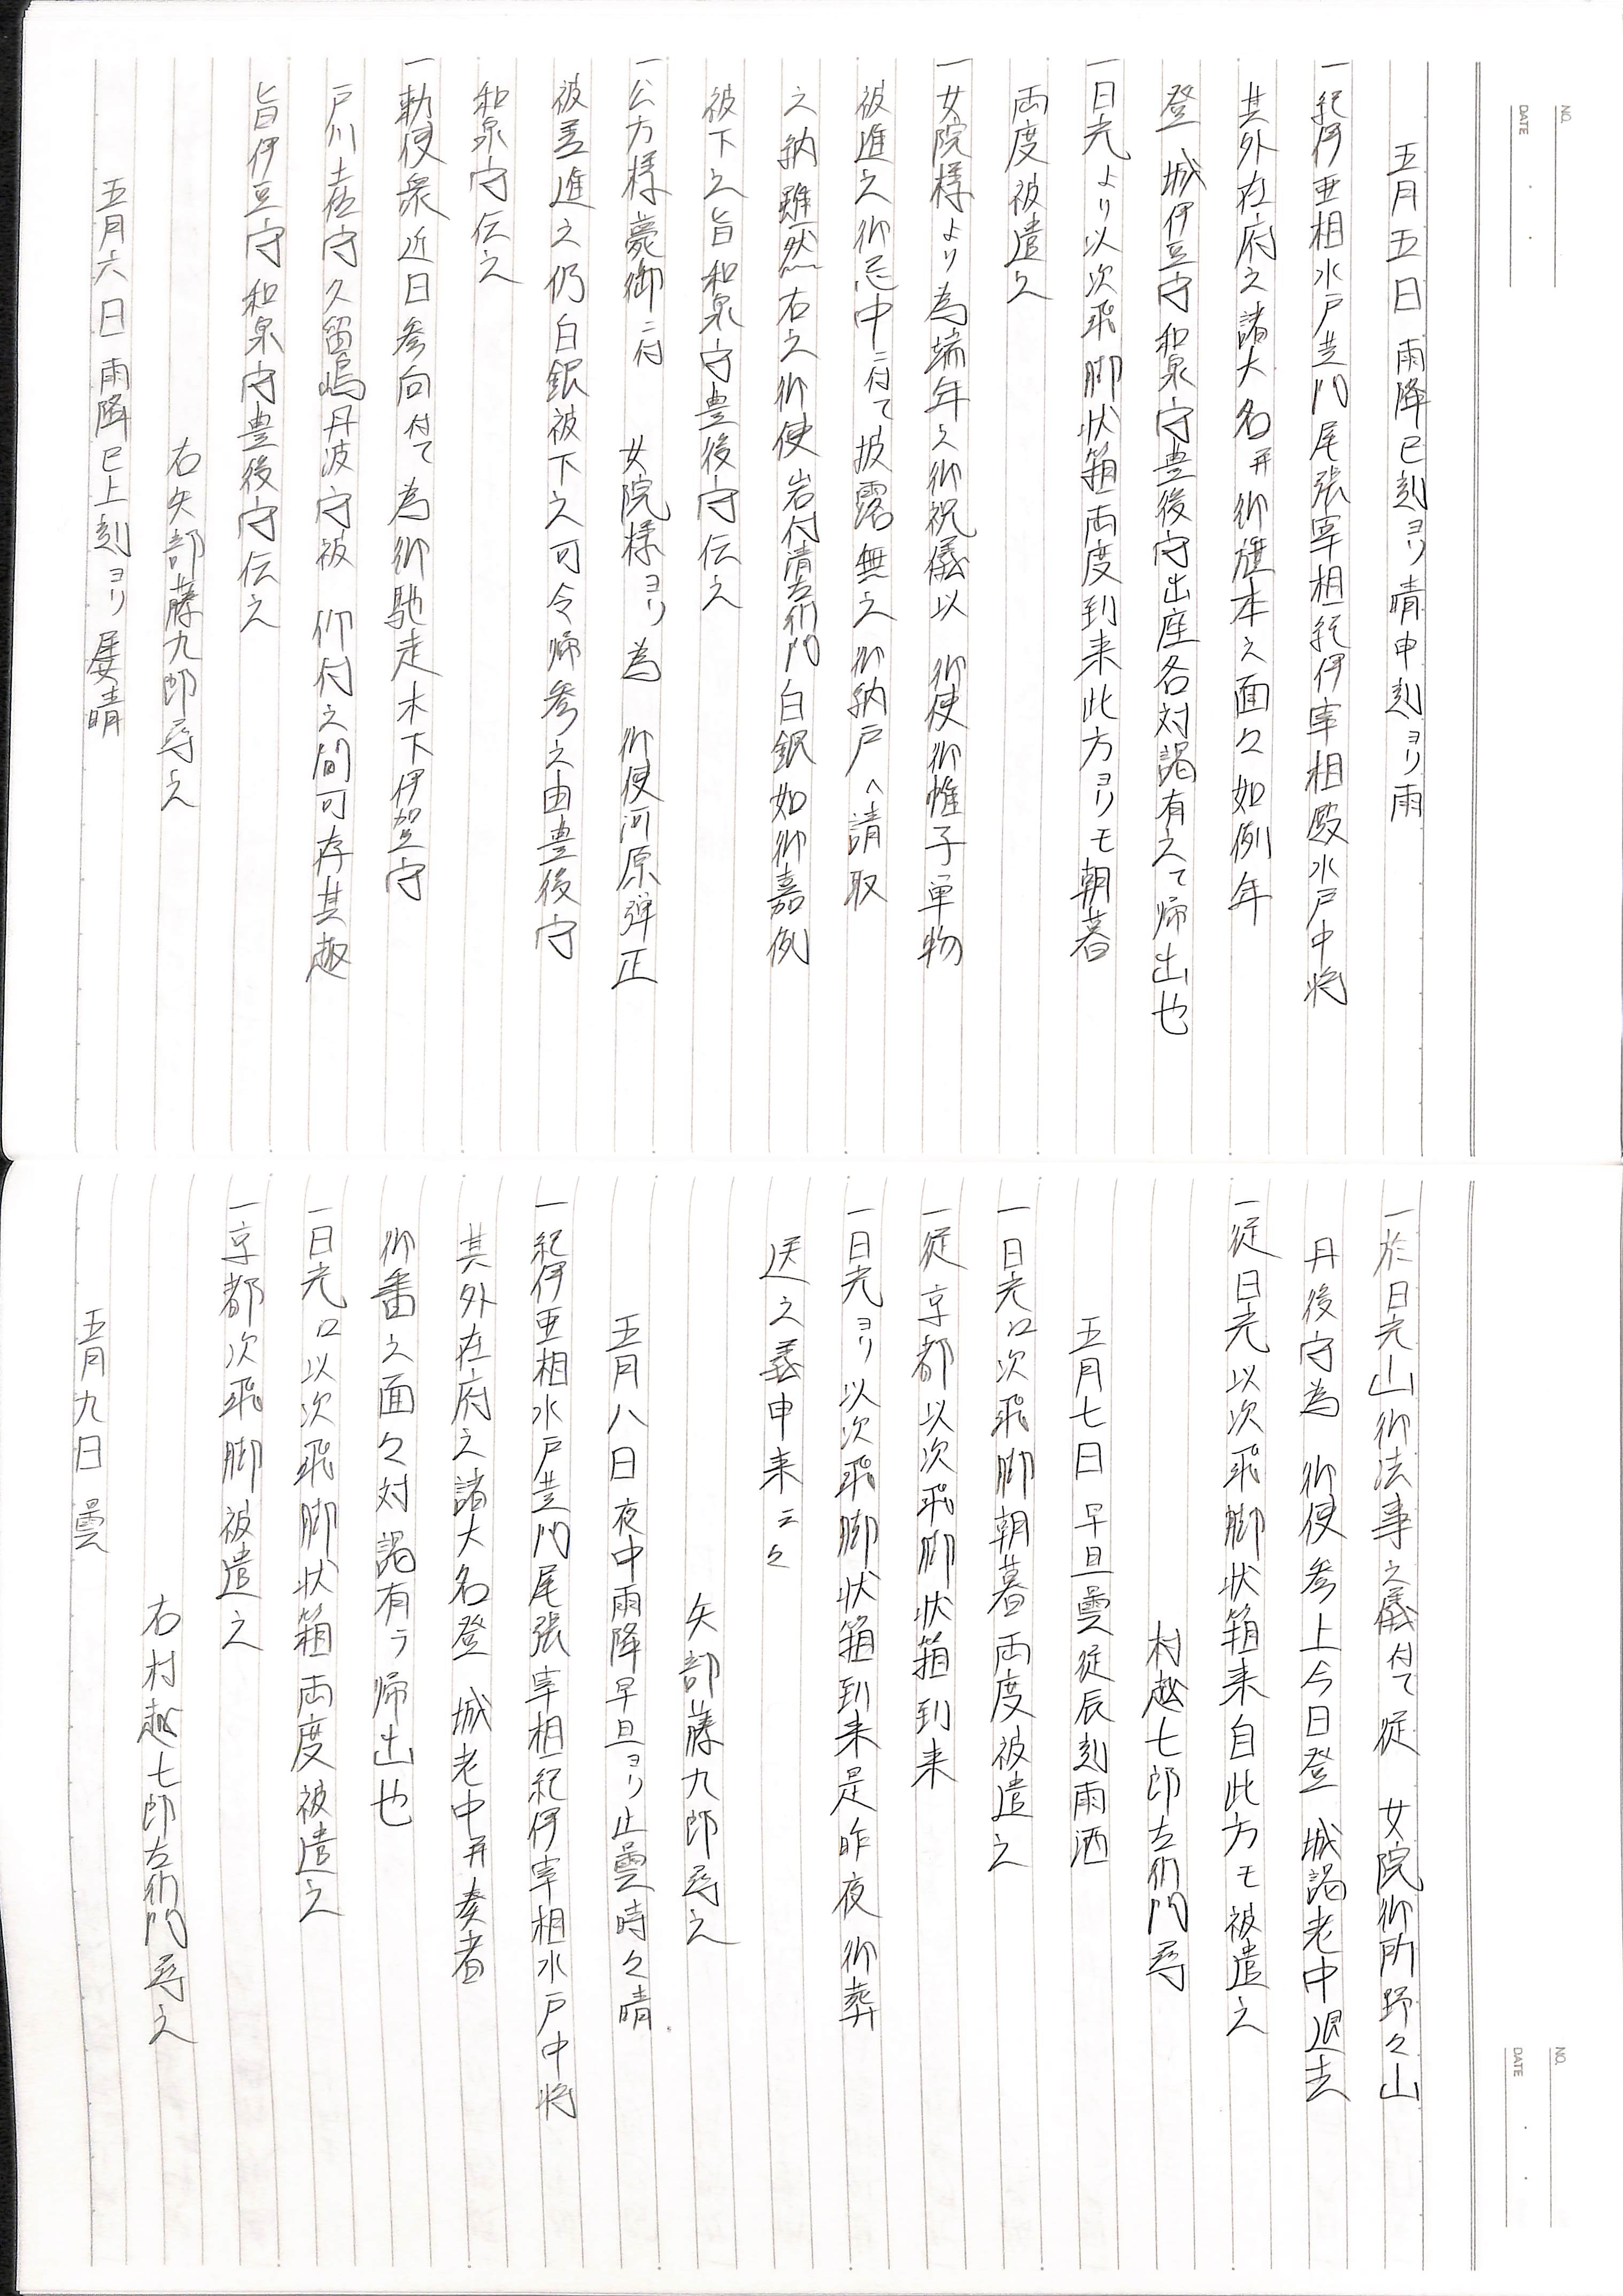 NO.
DATE
五月五日 雨降巳刻ヨリ晴申刻ヨリ雨
一紀伊亜相水戸黄門尾張宰相紀伊宰相殿水戸中将
其外在府之諸大名并御旗本之面々如例年
登 城伊豆守和泉守豊後守出座各対謁有之て帰出也
一日光より以次飛脚状箱両度到来此方ヨリモ朝暮
両度被遣之
一女院様より為端午之御祝儀以 御使御帷子単物
被進之御忌中ニ付て披露無之御納戸へ請取
之納雖然右之御使岩付清左衛門白銀如御嘉例
被下之旨和泉守豊後守伝之
一公方様薨御ニ付 女院様ヨリ為 御使河原弾正
被差進之仍白銀被下之可令帰参之由豊後守
和泉守伝之
一勅使衆近日参向付て為御馳走木下伊賀守
戸川土佐守久留嶋丹波守被 仰付之間可存其趣
旨伊豆守和泉守豊後守伝之
右矢部藤九郎尋之
五月六日 雨降巳上刻ヨリ屡晴
NO.
DATE
一於日光山御法事之儀付て従 女院御所野々山
丹後守為 御使参上今日登 城謁老中退去
一従日光以次飛脚状箱来自此方モ被遣之
村越七郎左衛門尋
五月七日 早旦曇従辰刻雨洒
一日光口次飛脚朝暮両度被遣之
一従京都以次飛脚状箱到来
一日光ヨリ以次飛脚状箱到来是昨夜御葬
送之義申来云々
矢部藤九郎尋之
五月八日 夜中雨降早旦ヨリ止曇時々晴
一紀伊亜相水戸黄門尾張宰相紀伊宰相水戸中将
其外在府之諸大名登 城老中并奏者
御番之面々対謁有テ帰出也
一日光口以次飛脚状箱両度被遣之
一京都次飛脚被遣之
右村越七郎左衛門尋之
五月九日 曇